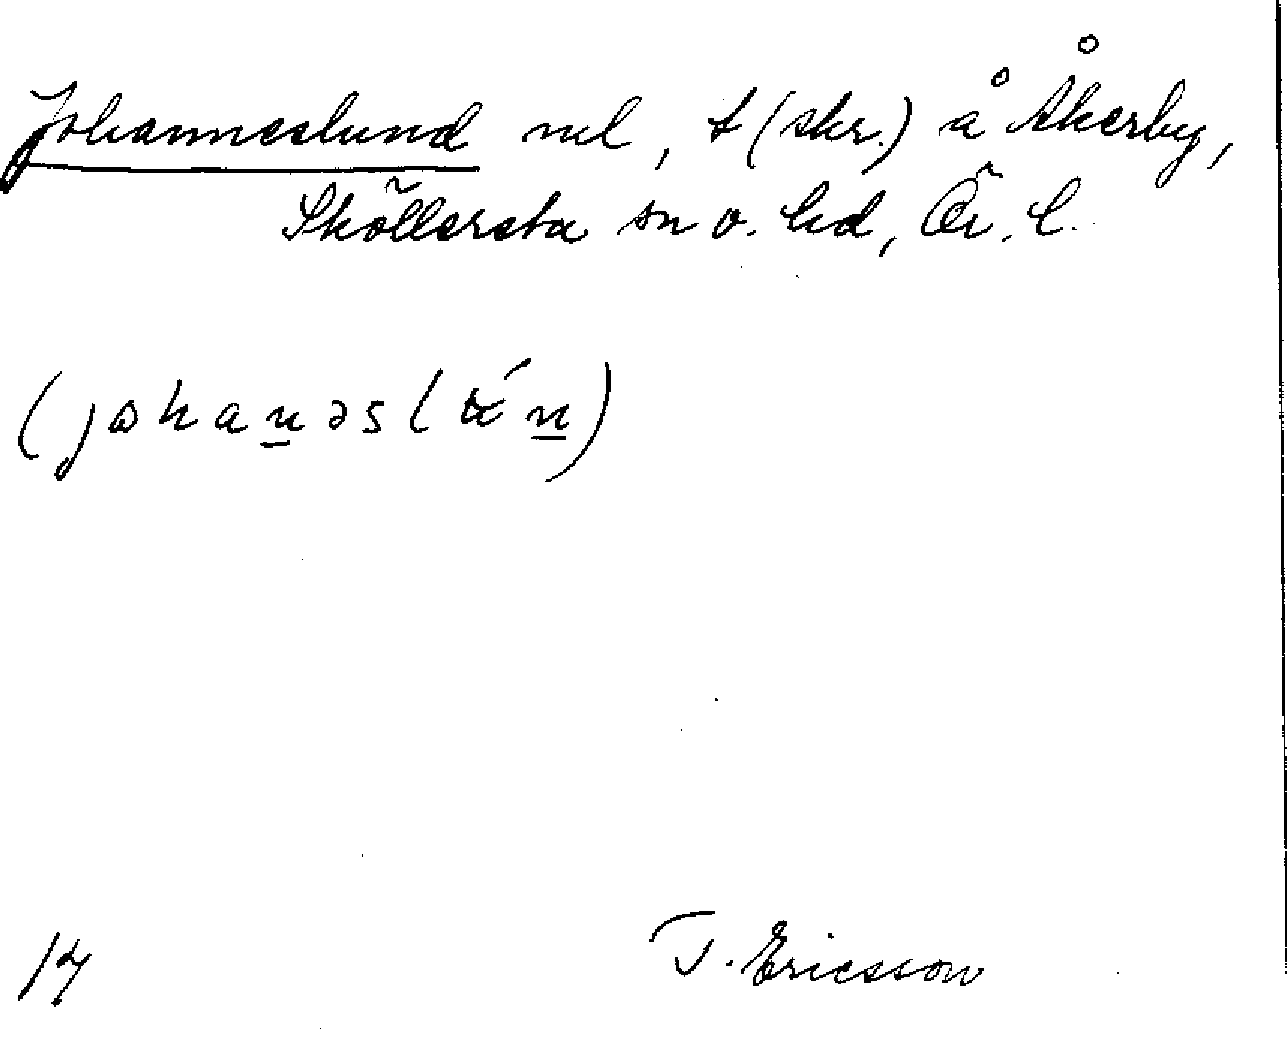 Johanneslund nul, t (skr.) å Åkerby,
Sköllersta sn o. hd, Ör. l.
(johanəsl
14
T. Ericsson